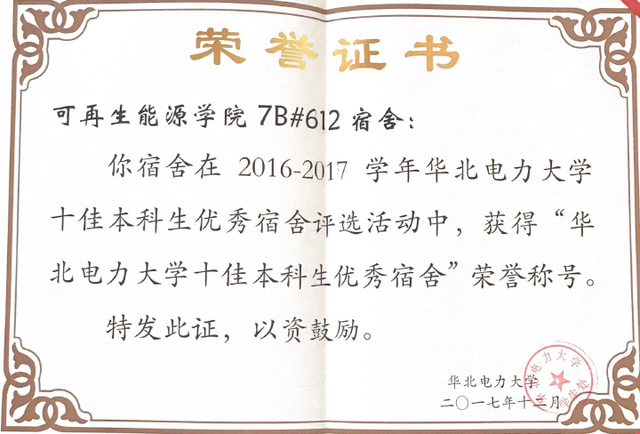 荣誉证书
可再生能源学院 7B#612 宿舍：
你宿舍在 2016-2017 学年华北电力大学
十佳本科生优秀宿舍评选活动中，获得“华
北电力大学十佳本科生优秀宿舍”荣誉称号。
特发此证，以资鼓励。
华北电力大学
二〇一七年十二月